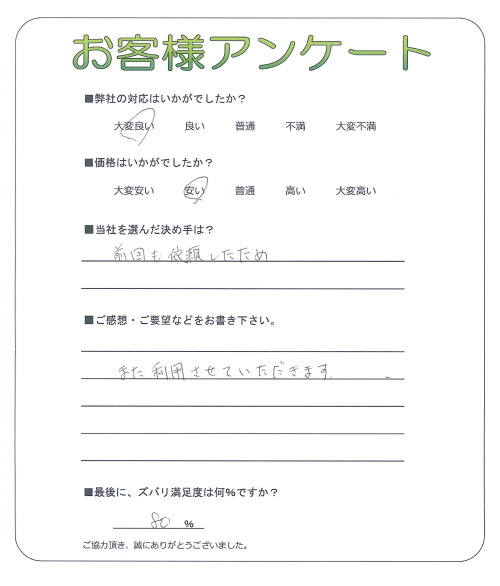 お客様アンケート
■弊社の対応はいかがでしたか？
大変良い 良い 普通 不満 大変不満
■価格はいかがでしたか？
大変安い 安い 普通 高い 大変高い
■当社を選んだ決め手は？
前回も依頼したため
■ご感想・ご要望などをお書き下さい。
また利用させていただきます
■最後に、ズバリ満足度は何%ですか？
80 %
ご協力頂き、誠にありがとうございました。